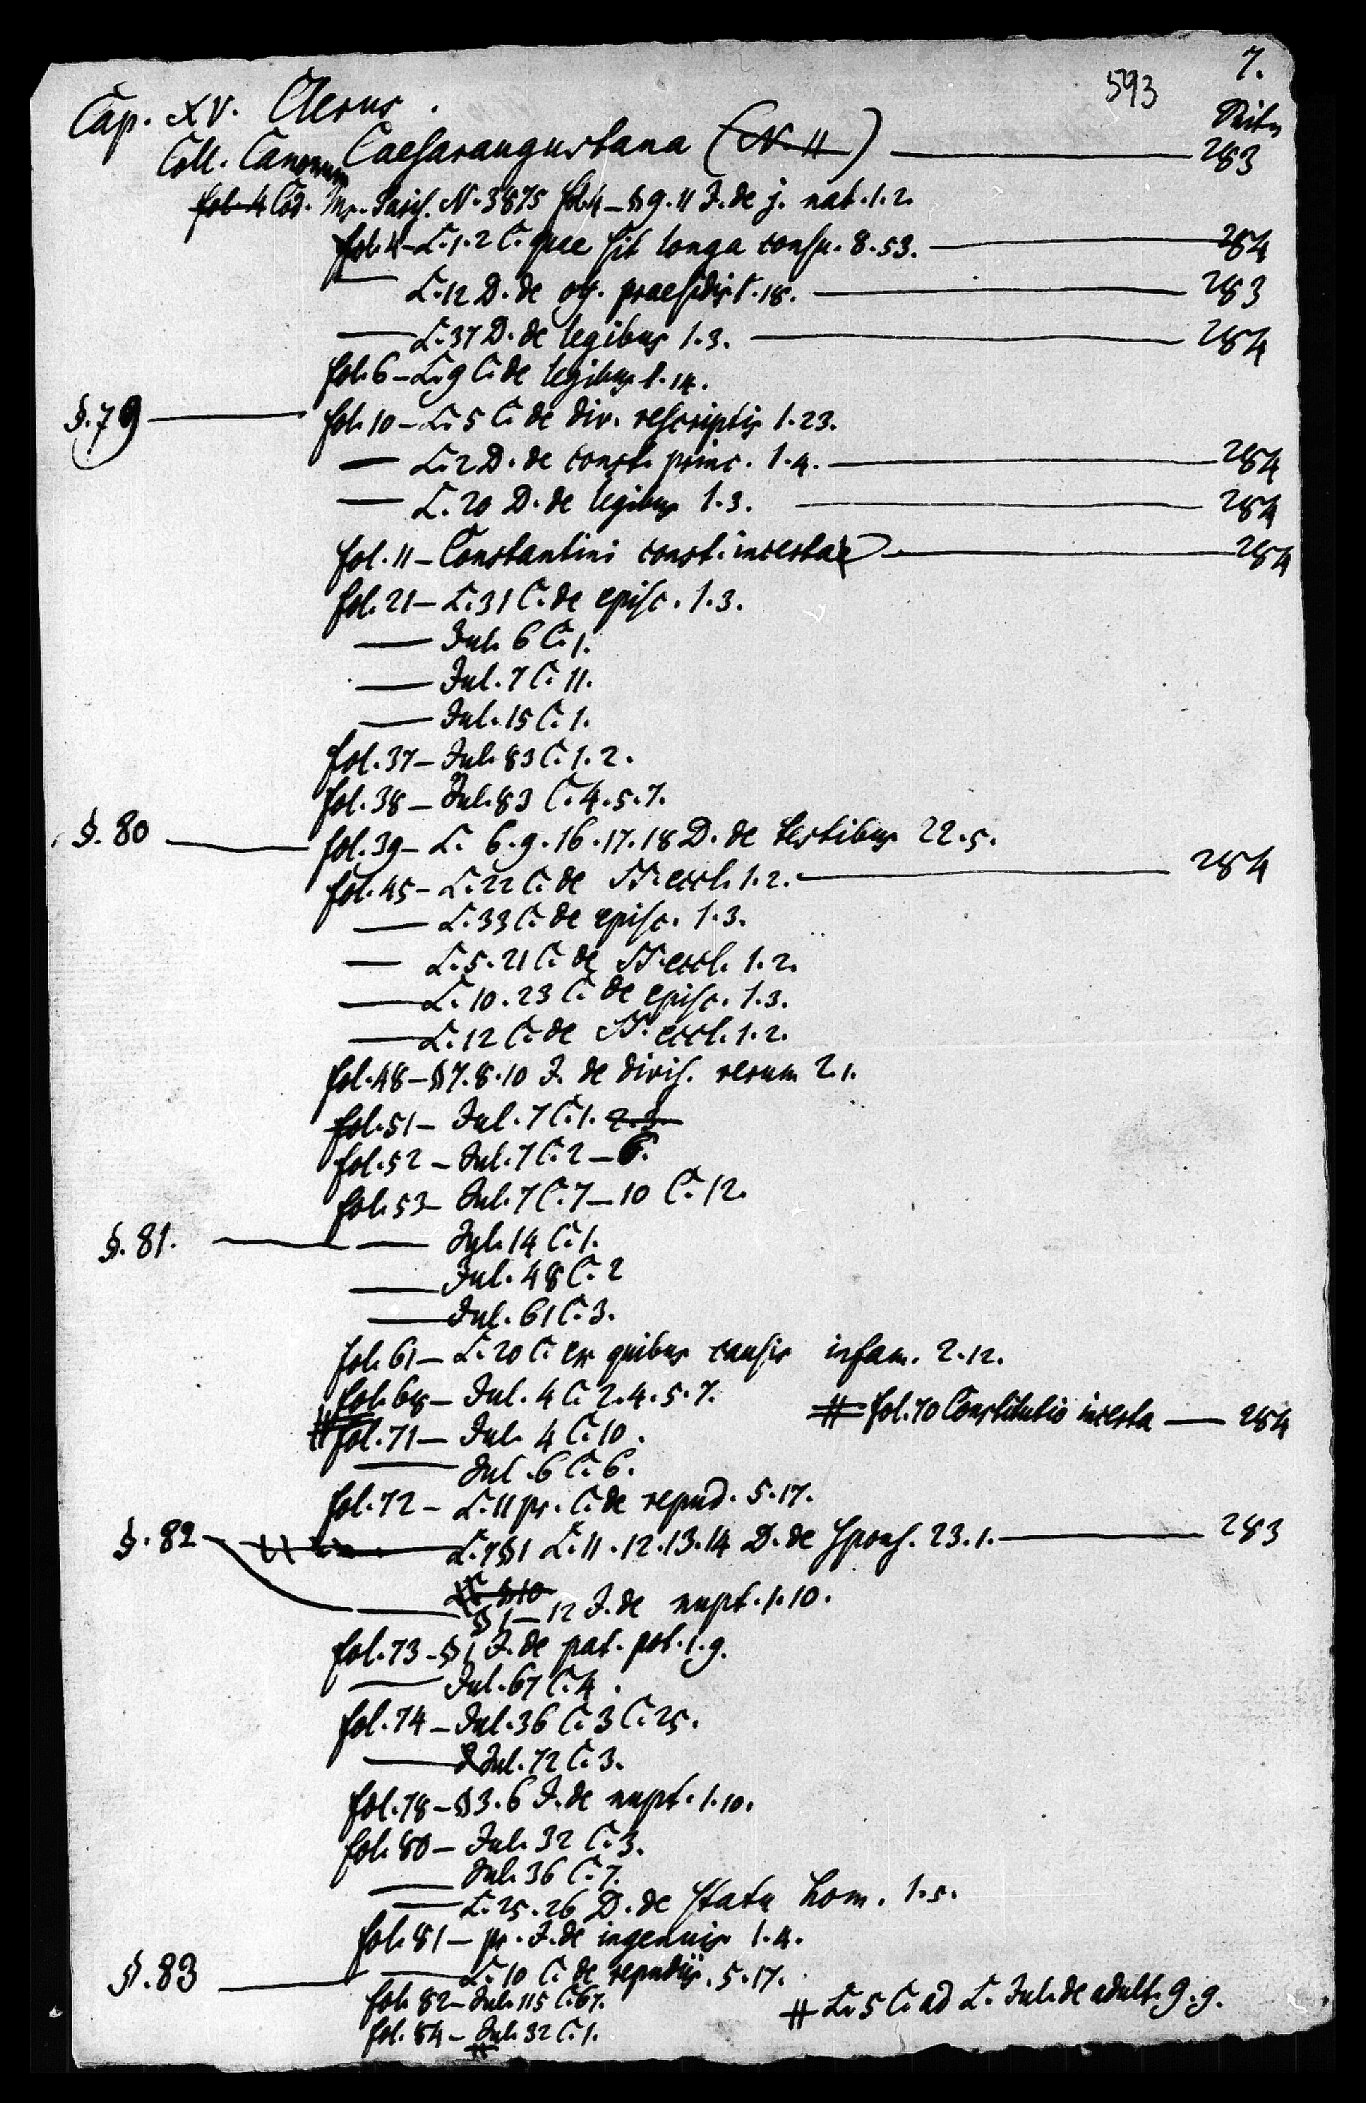 593
7.
Cap. XV. Clerus.
Seite
Coll. Canonum Caesaraugustana (N. 11) 283
fol. 4 Cod. Ms. Paris. N. 3875 fol. 4 - § 9. 11 I. de j. nat. 1. 2.
fol. 4 - L. 1. 2 C. quae sit longa consu. 8. 53. 284
L. 12 D. de off. praesidis 1. 18. 283
L. 37 D. de legibus 1. 3. 284
fol. 6 - L. 9 C. de legibus 1. 14.
§. 79 fol. 10 - L. 5 C. de div. rescriptis 1. 23.
L. 2 D. de const. princ. 1. 4. 284
L. 20 D. de legibus 1. 3. 284
fol. 11 - Constantini const. incerta 284
fol. 21 - L. 31 C. de episc. 1. 3.
Jul. 6 C. 1.
Jul. 7 C. 11.
Jul. 15 C. 1.
fol. 37 - Jul. 83 C. 1. 2.
fol. 38 - Jul. 83 C. 4. 5. 7.
§. 80 fol. 39 - L. 6. 9. 16. 17. 18 D. de testibus 22. 5.
fol. 45 - L. 22 C. de SS. eccl. 1. 2. 284
L. 33 C. de episc. 1. 3.
L. 5. 21 C. de SS. eccl. 1. 2.
L. 10. 23 C. de episc. 1. 3.
L. 12 C. de SS. eccl. 1. 2.
fol. 48 - § 7. 8. 10 I. de divis. rerum 2. 1.
fol. 51 - Jul. 7 C. 1. 2. 3.
fol. 52 - Jul. 7 C. 2 - 6.
fol. 53 - Jul. 7 C. 7 - 10 C. 12.
§. 81. Jul. 14 C. 1.
Jul. 48 C. 2
Jul. 61 C. 3.
fol. 61 - L. 20 C. ex quibus causis infam. 2. 12.
fol. 68 - Jul. 4 C. 2. 4. 5. 7.
# fol. 70 Constitutio incerta 284
# fol. 71 - Jul. 4 C. 10.
Jul. 6 C. 6.
fol. 72 - L. 11 pr. C. de repud. 5. 17.
§. 82 L. 7 § 1 L. 11. 12. 13. 14 D. de spons. 23. 1. 283
§ 10
§ 1 - 12 I. de nupt. 1. 10.
fol. 73 - § 1 I. de pat. pot. 1. 9.
Jul. 67 C. 4.
fol. 74 - Jul. 36 C. 3 C. 25.
Jul. 72 C. 3.
fol. 78 - § 3. 6 I. de nupt. 1. 10.
fol. 80 - Jul. 32 C. 3.
Jul. 36 C. 7.
L. 25. 26 D. de statu hom. 1. 5.
fol. 81 - pr. I. de ingenuis 1. 4.
§. 83 L. 10 C. de repudiis. 5. 17.
fol. 82 - Jul. 115 C. 67.
# L. 5 C. ad L. Jul. de adult. 9. 9.
fol. 84 - Jul. 32 C. 1.
#